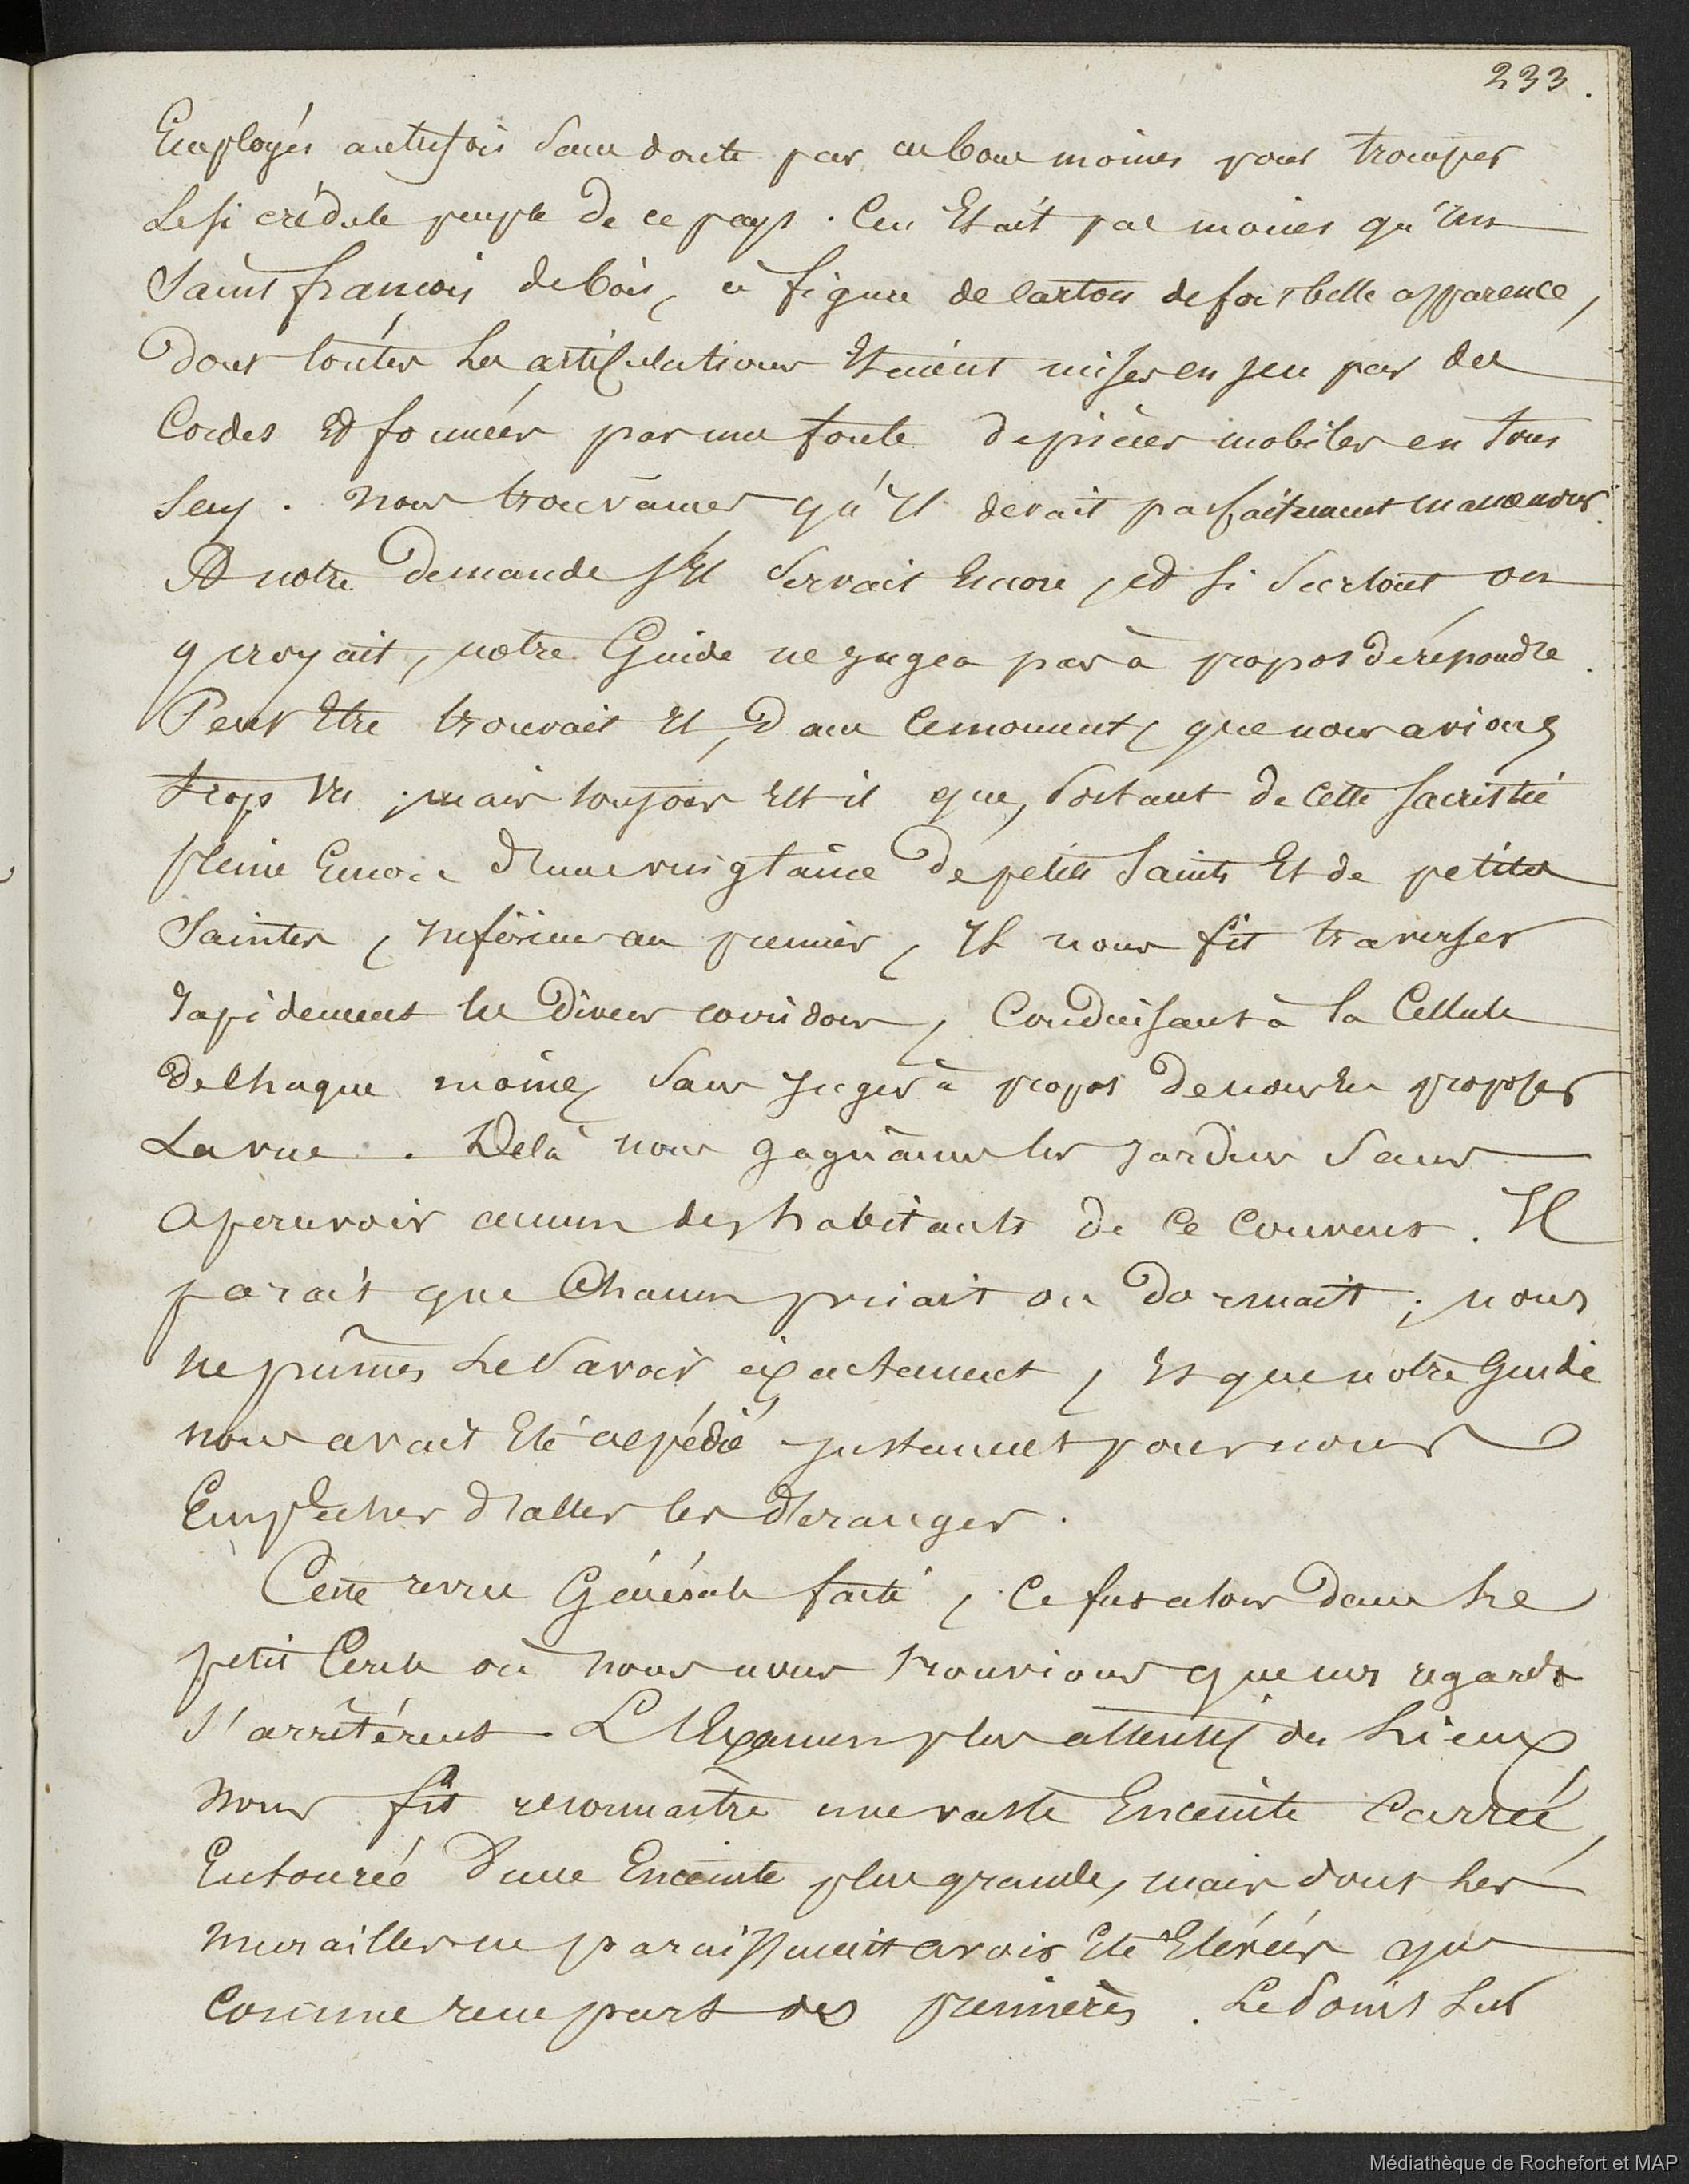 233.
Employés autrefois sans doute par ces bons moines pour tromper
le si crédule peuple de ce pays. Ce n'était pas moins qu'un
Saint françois de bois, à figure de carton de fort belle apparence,
dont toutes les articulations étaient mises en jeu par des
Cordes et formées par une foule de pièces mobiles en tous
sens. nous trouvâmes qu'il devait parfaitement manœuvrer.
A notre demande s'il servait encore, et si surtout on
y croyait, notre Guide ne jugea pas à propos de répondre.
Peut être trouvait il, dans ce moment, que nous avions
trop vu; mais toujours est-il que, sortant de cette sacristie
pleine encore d'une vingtaine de petits Saints et de petites
Saintes, inférieurs au premier, il nous fit traverser
rapidement les divers corridors, Conduisant à la Cellule
de chaque moine, sans juger à propos de nous en proposer
la vue. De là nous gagnâmes les jardins sans
apercevoir aucun des habitants de ce couvent. Il
parait que Chacun priait ou dormait; nous
ne pûmes le savoir exactement, et que notre Guide
nous avait été expédié justement pour nous
Empêcher d'aller les déranger.
Cette revue Générale faite, ce fut alors dans le
petit Cercle où nous nous trouvions que nos regards
s'arrêtèrent. L'Examen plus attentif des lieux
nous fit reconnaître une vaste Enceinte Carrée,
Entourée d'une Enceinte plus grande, mais dont les
murailles ne paraissaient avoir été élevées que
comme rempart des premières. Le Point sur
Médiathèque de Rochefort et MAP